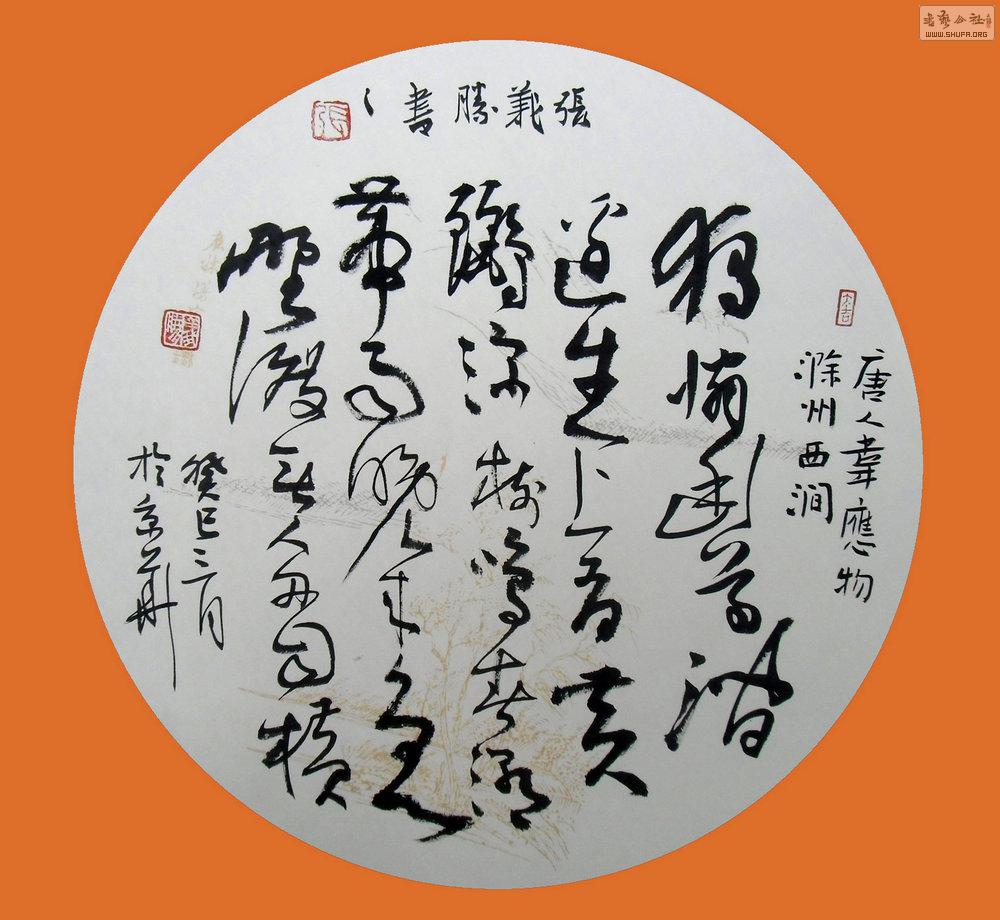 唐人韋應物
滁州西澗
獨憐幽草澗
邊生上有黃
鸝深樹鳴春潮
帶雨晚來急
野渡無人舟自橫
癸巳三月
於京華
張義勝書
張
大吉
书藝公社
WWW.SHUFA.ORG